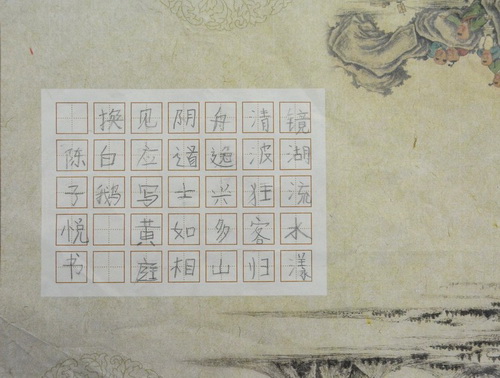 镜湖流水漾
清波狂客归
舟逸兴多山
阴道士如相
见应写黄庭
换白鹅
陈子悦书